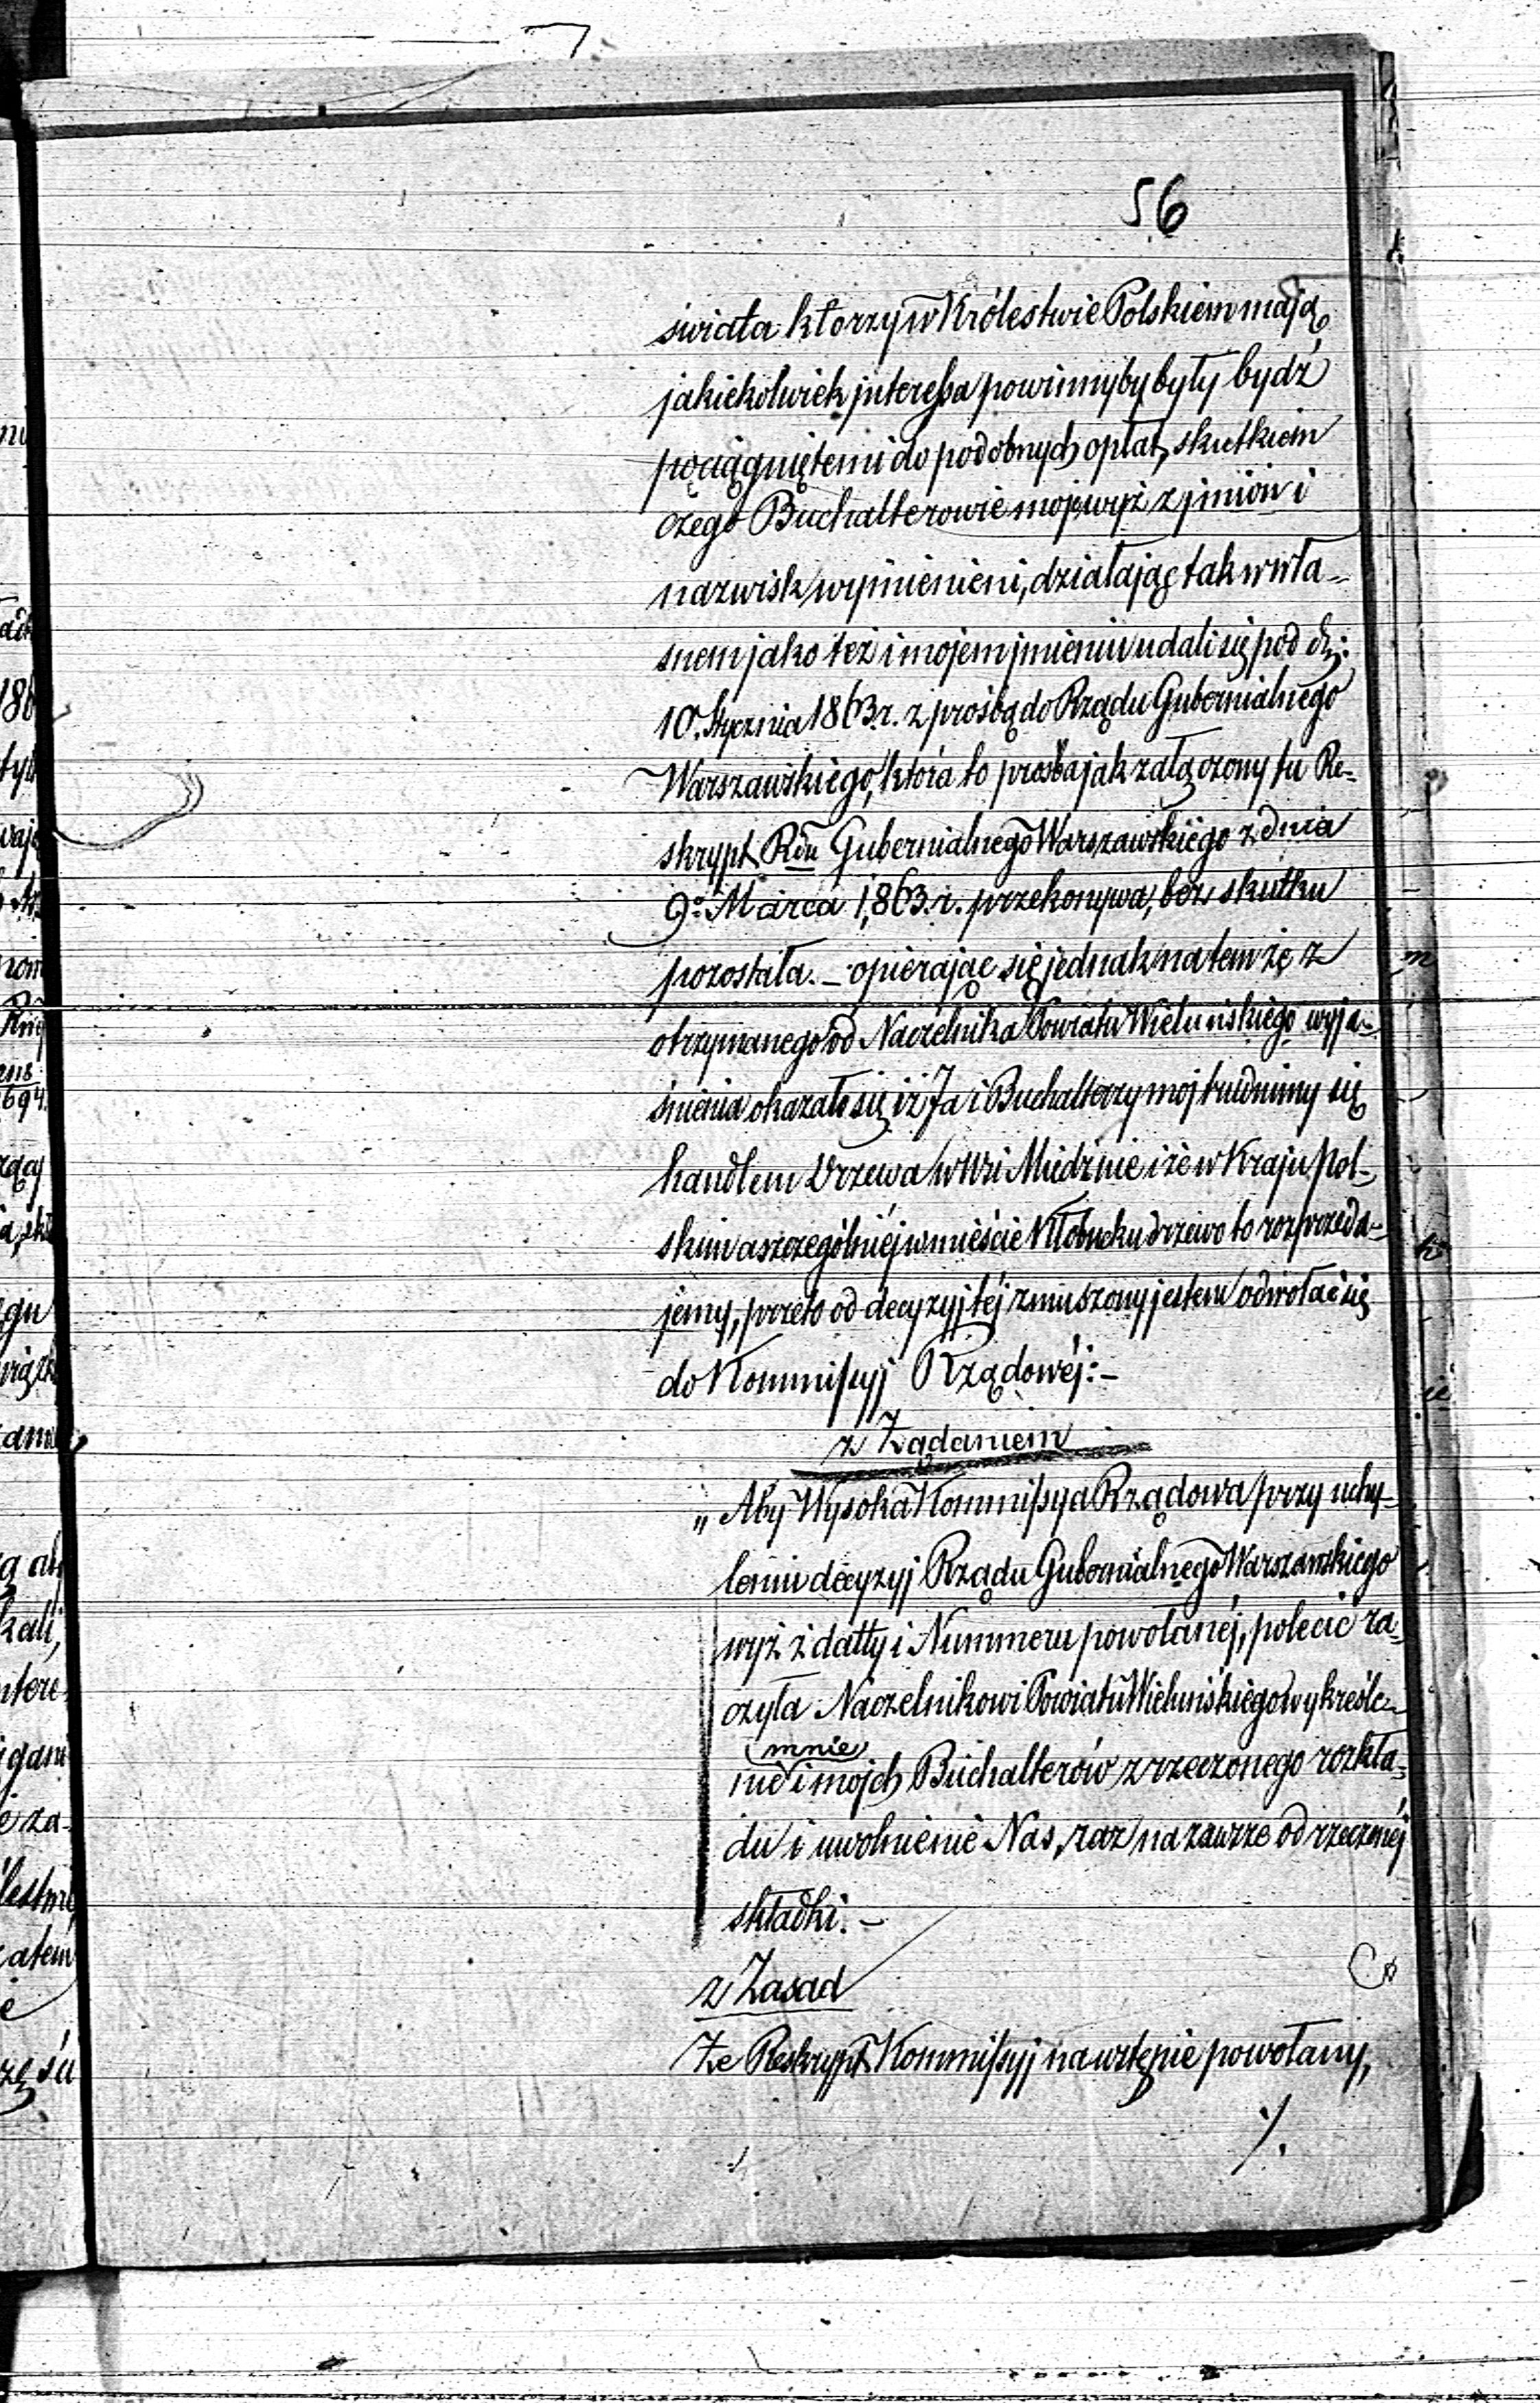 56
świata którzy w Królestwie Polskiem mają
jakiekolwiek jnteressa powinnyby były bydź
pociągniętemi do podobnych opłat, skutkiem
czego Buchalterowie moi wyż z jmion i
nazwisk wymienieni, działając tak w wła-
snem jako też i mojem jmieniu udali się pod dn:
10. Stycznia 1863 r. z prosbą do Rządu Gubernialnego
Warszawskiego, która to prosba jak załączony tu Re-
skrypt Rdu Gubernialnego Warszawskiego z dnia
9o Marca 1863 r. przekonywa, bez skutku
pozostała. – opierając się jednak na tem że z
otrzymanego od Naczelnika Powiatu Wieluńskiego wyja-
śnienia okazało się iż Ja i Buchalterzy moj trudnimy się
handlem Drzewa w Wsi Miedźnie i że w Kraju Pol-
skim a szczególniéj w mieście Kłobucku drzewo to rozprzeda-
jemy, przeto od decyzyj téj zmuszony jestem odwołać się
do Kommissyj Rządowéj: –
z Żądaniem
„ Aby Wysoka Kommissya Rządowa przy uchy-
leniu decyzyj Rządu Gubernialnego Warszawskiego
wyż z datty i Nummeru powołanéj, polecić ra-
czyła Naczelnikowi Powiatu Wieluńskiego wykreśle-
mnie
nie i mojch Buchalterów z rzeczonego rozkła-
du i uwolnienie Nas, raz na zawsze od rzeczonéj
składki. –
z Zasad
Że Reskrypt Kommissyj na wstępie powołany,
./.